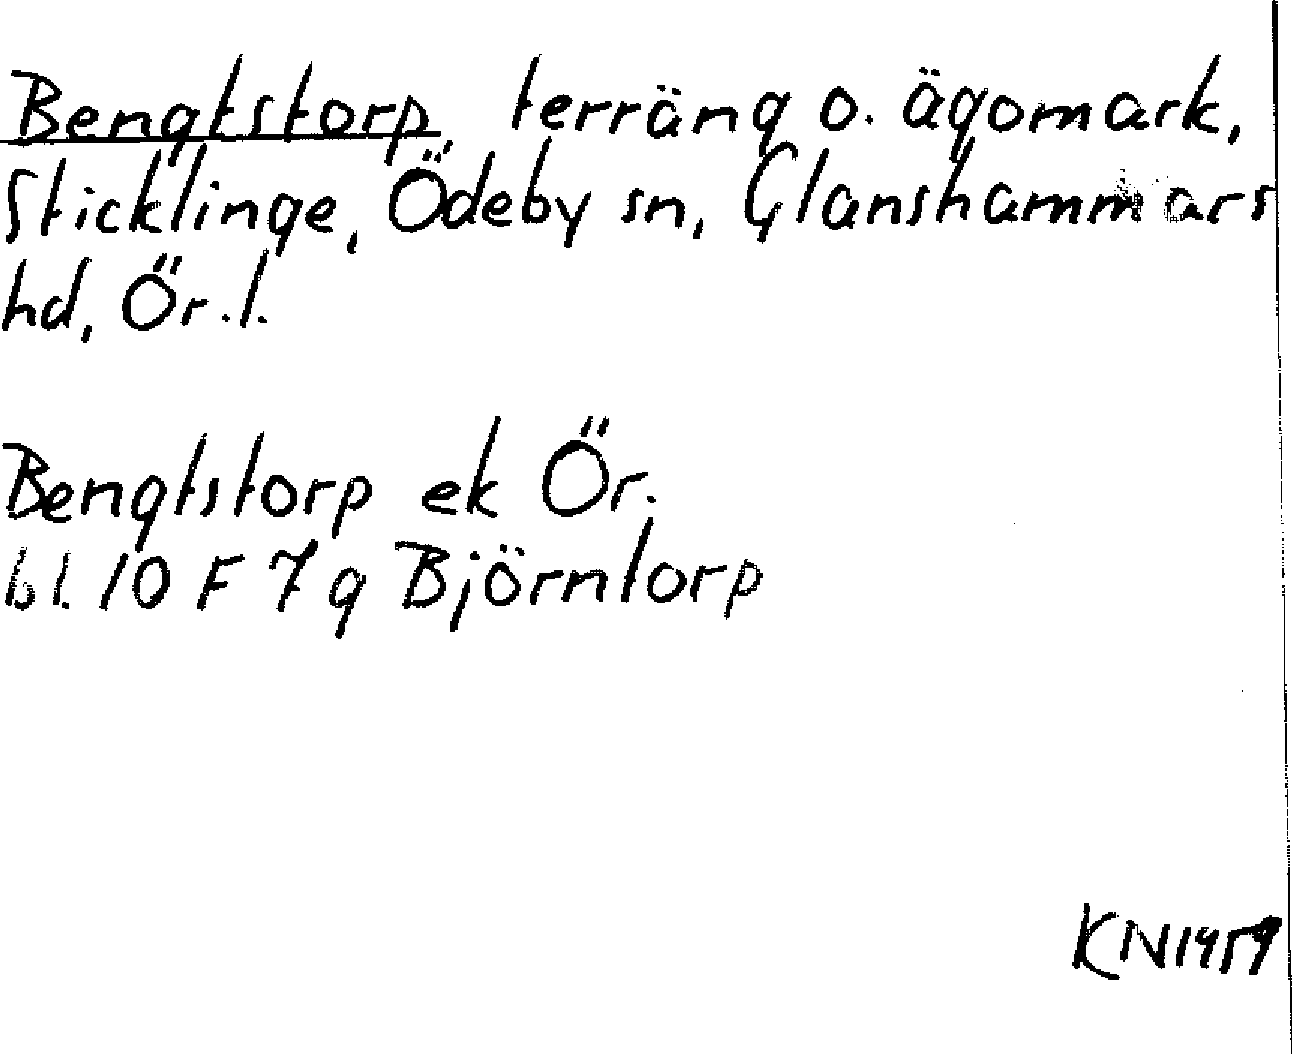 Bengtstorp, terräng o. ägomark,
Sticklinge, Ödeby sn, Glanshammars
hd, Ör.l.
Bengtstorp ek Ör.
bl. 10 F 7 g Björntorp
KN 1959